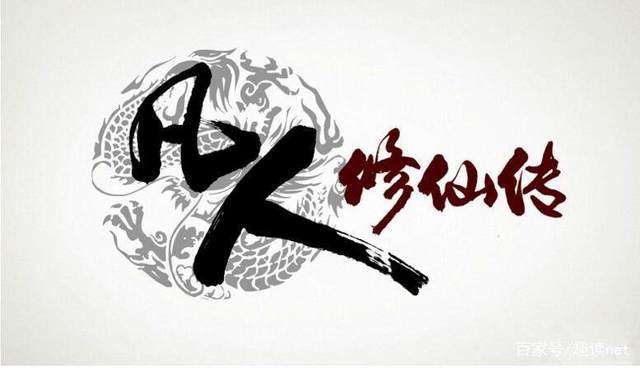 凡人修仙传
百家号/趣读net